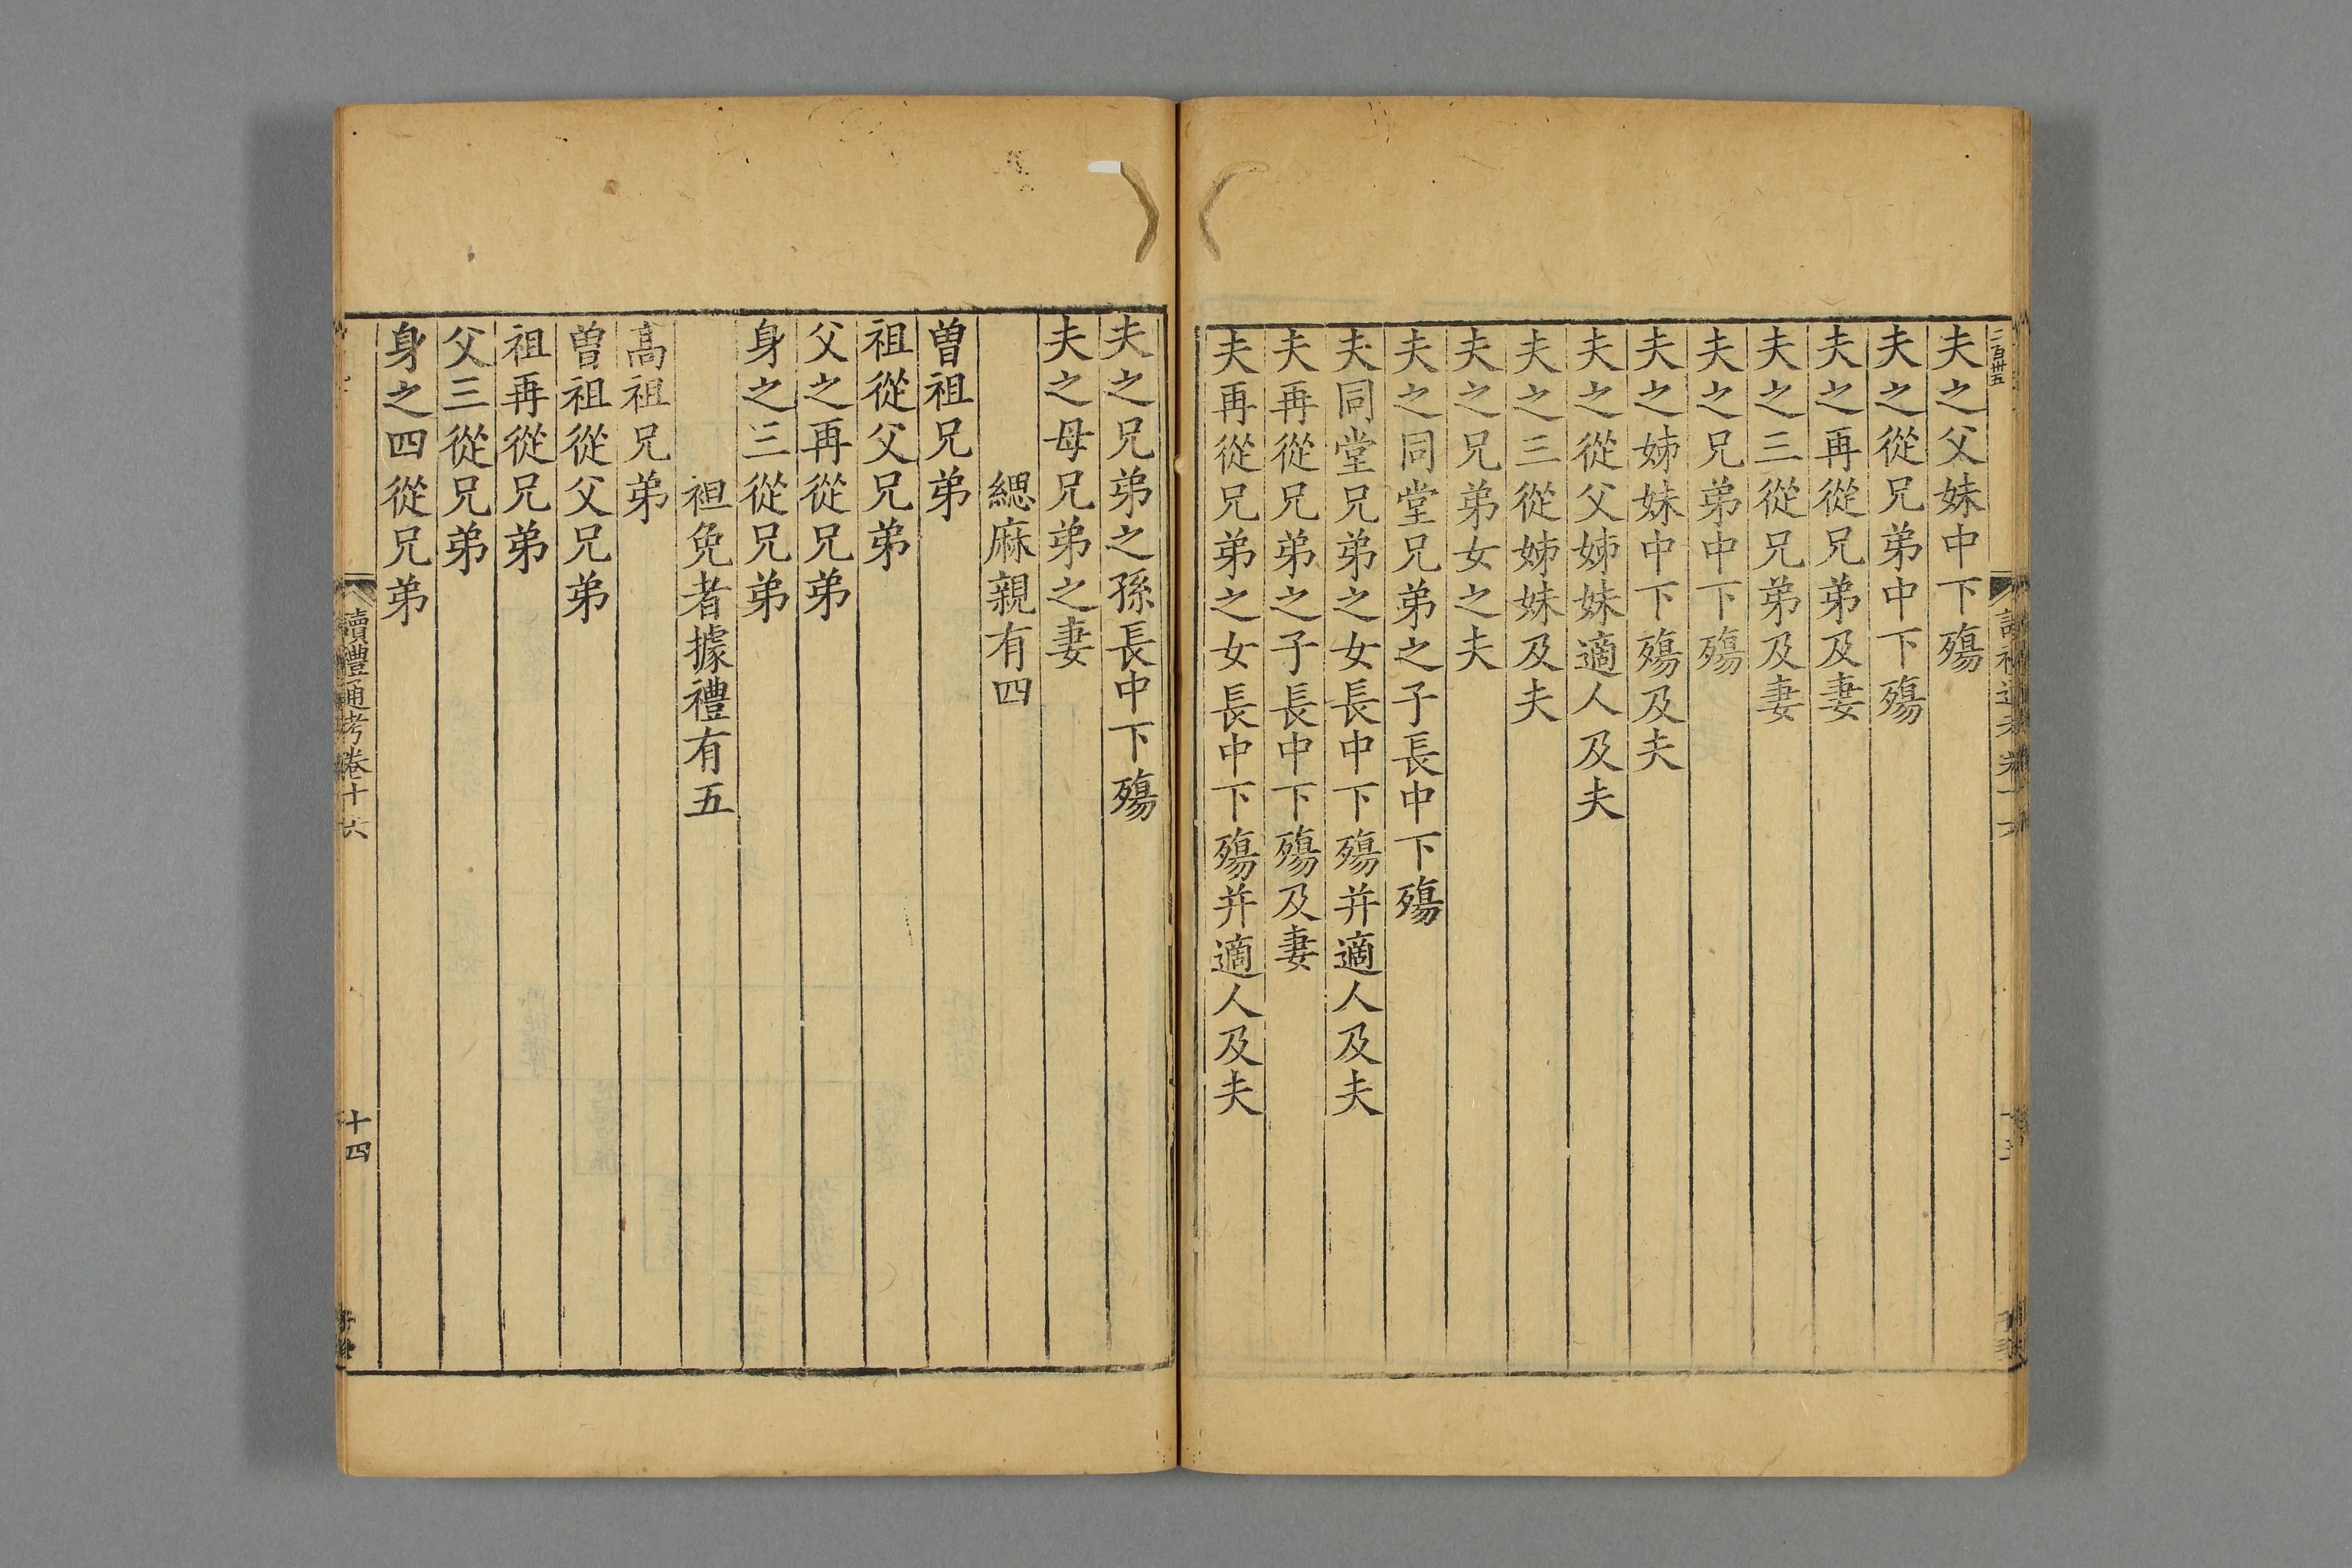 二百卅五
夫之父妹中下殤
夫之從兄弟中下殤
夫之再從兄弟及妻
夫之三從兄弟及妻
夫之兄弟中下殤
夫之姊妹中下殤及夫
夫之從父姊妹適人及夫
夫之三從姊妹及夫
夫之兄弟女之夫
夫之同堂兄弟之子長中下殤
夫同堂兄弟之女長中下殤并適人及夫
夫再從兄弟之子長中下殤及妻
夫再從兄弟之女長中下殤并適人及夫
夫之兄弟之孫長中下殤
夫之母兄弟之妻
緦麻親有四
曽祖兄弟
祖從父兄弟
父之再從兄弟
身之三從兄弟
袒免者據禮有五
高祖兄弟
曽祖從父兄弟
祖再從兄弟
父三從兄弟
身之四從兄弟
讀禮通考卷十六
十四